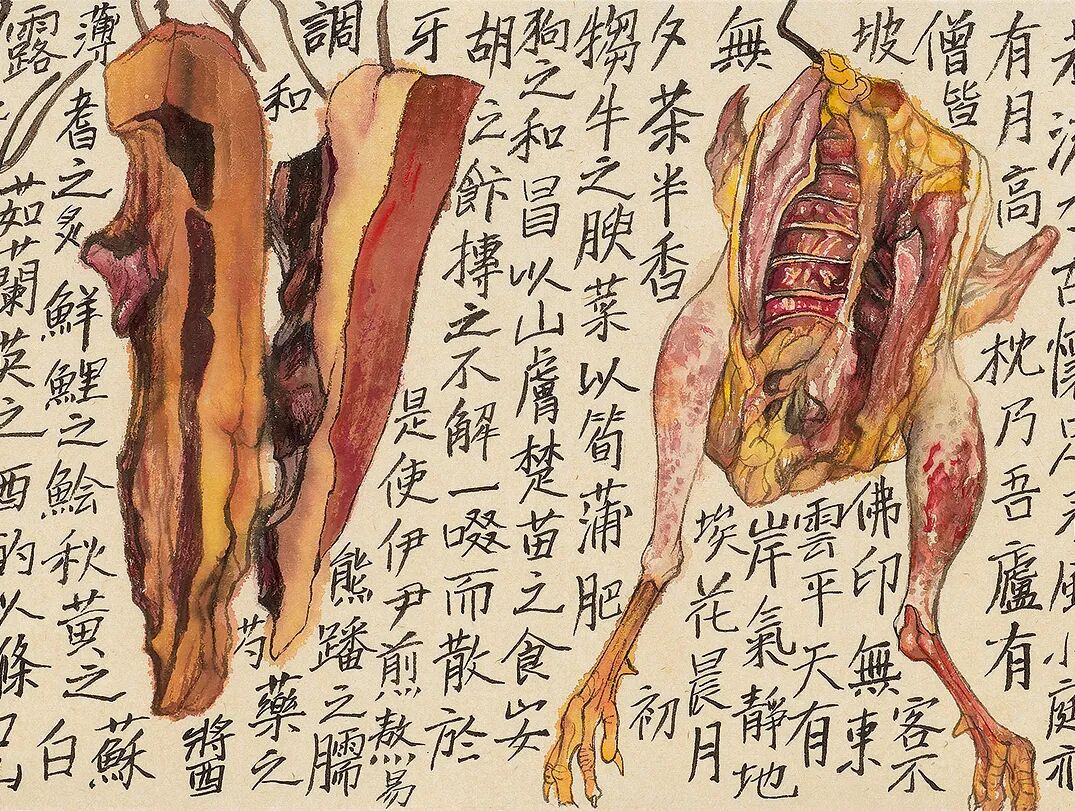 有月高枕乃吾廬有
僧皆
佛印無
客不
東
坡
雲平天有
岸氣靜地
無埃花晨月
夕茶半香初
犓牛之腴菜以筍蒲肥
狗之和冒以山膚楚苗之食安
胡之飰摶之不解一啜而散於
是使伊尹煎熬易
牙
調
和
熊
蹯之臑
芍
藥之
醬
薄
耆之炙鮮鯉之鱠秋黃之
蘇
白
露
茹蘭英之